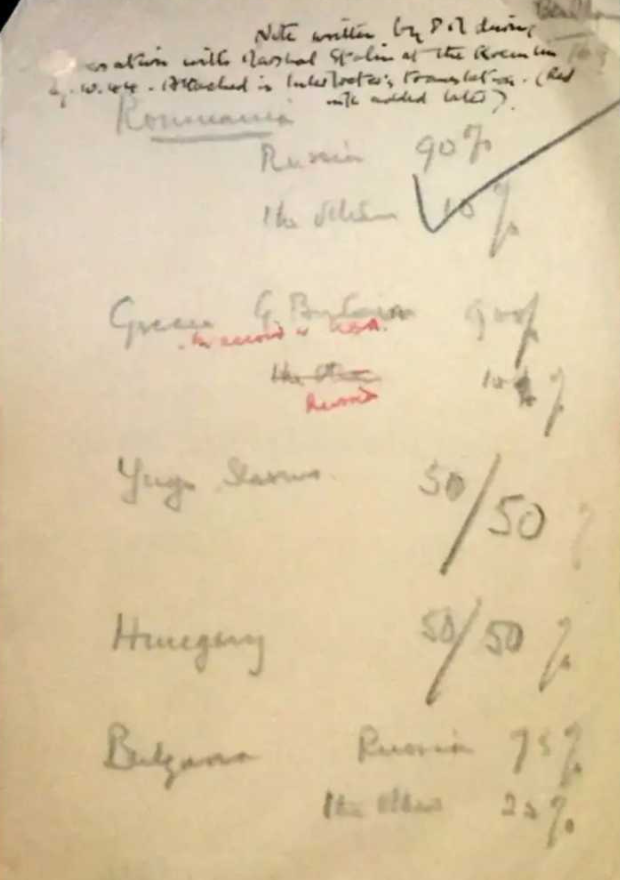 Note written by P.M during
with Marshal Stalin at the Kremlin
10.44. Attached is Interlocter's translation. (Red
ink added later).
Roumania
Russia 90%
The others 10%
Greece G. Britain 90%
in accord w USA.
The others 10%
Russia
Yugo Slavia 50/50%
Hungary 50/50%
Bulgaria Russia 75%
The others 25%